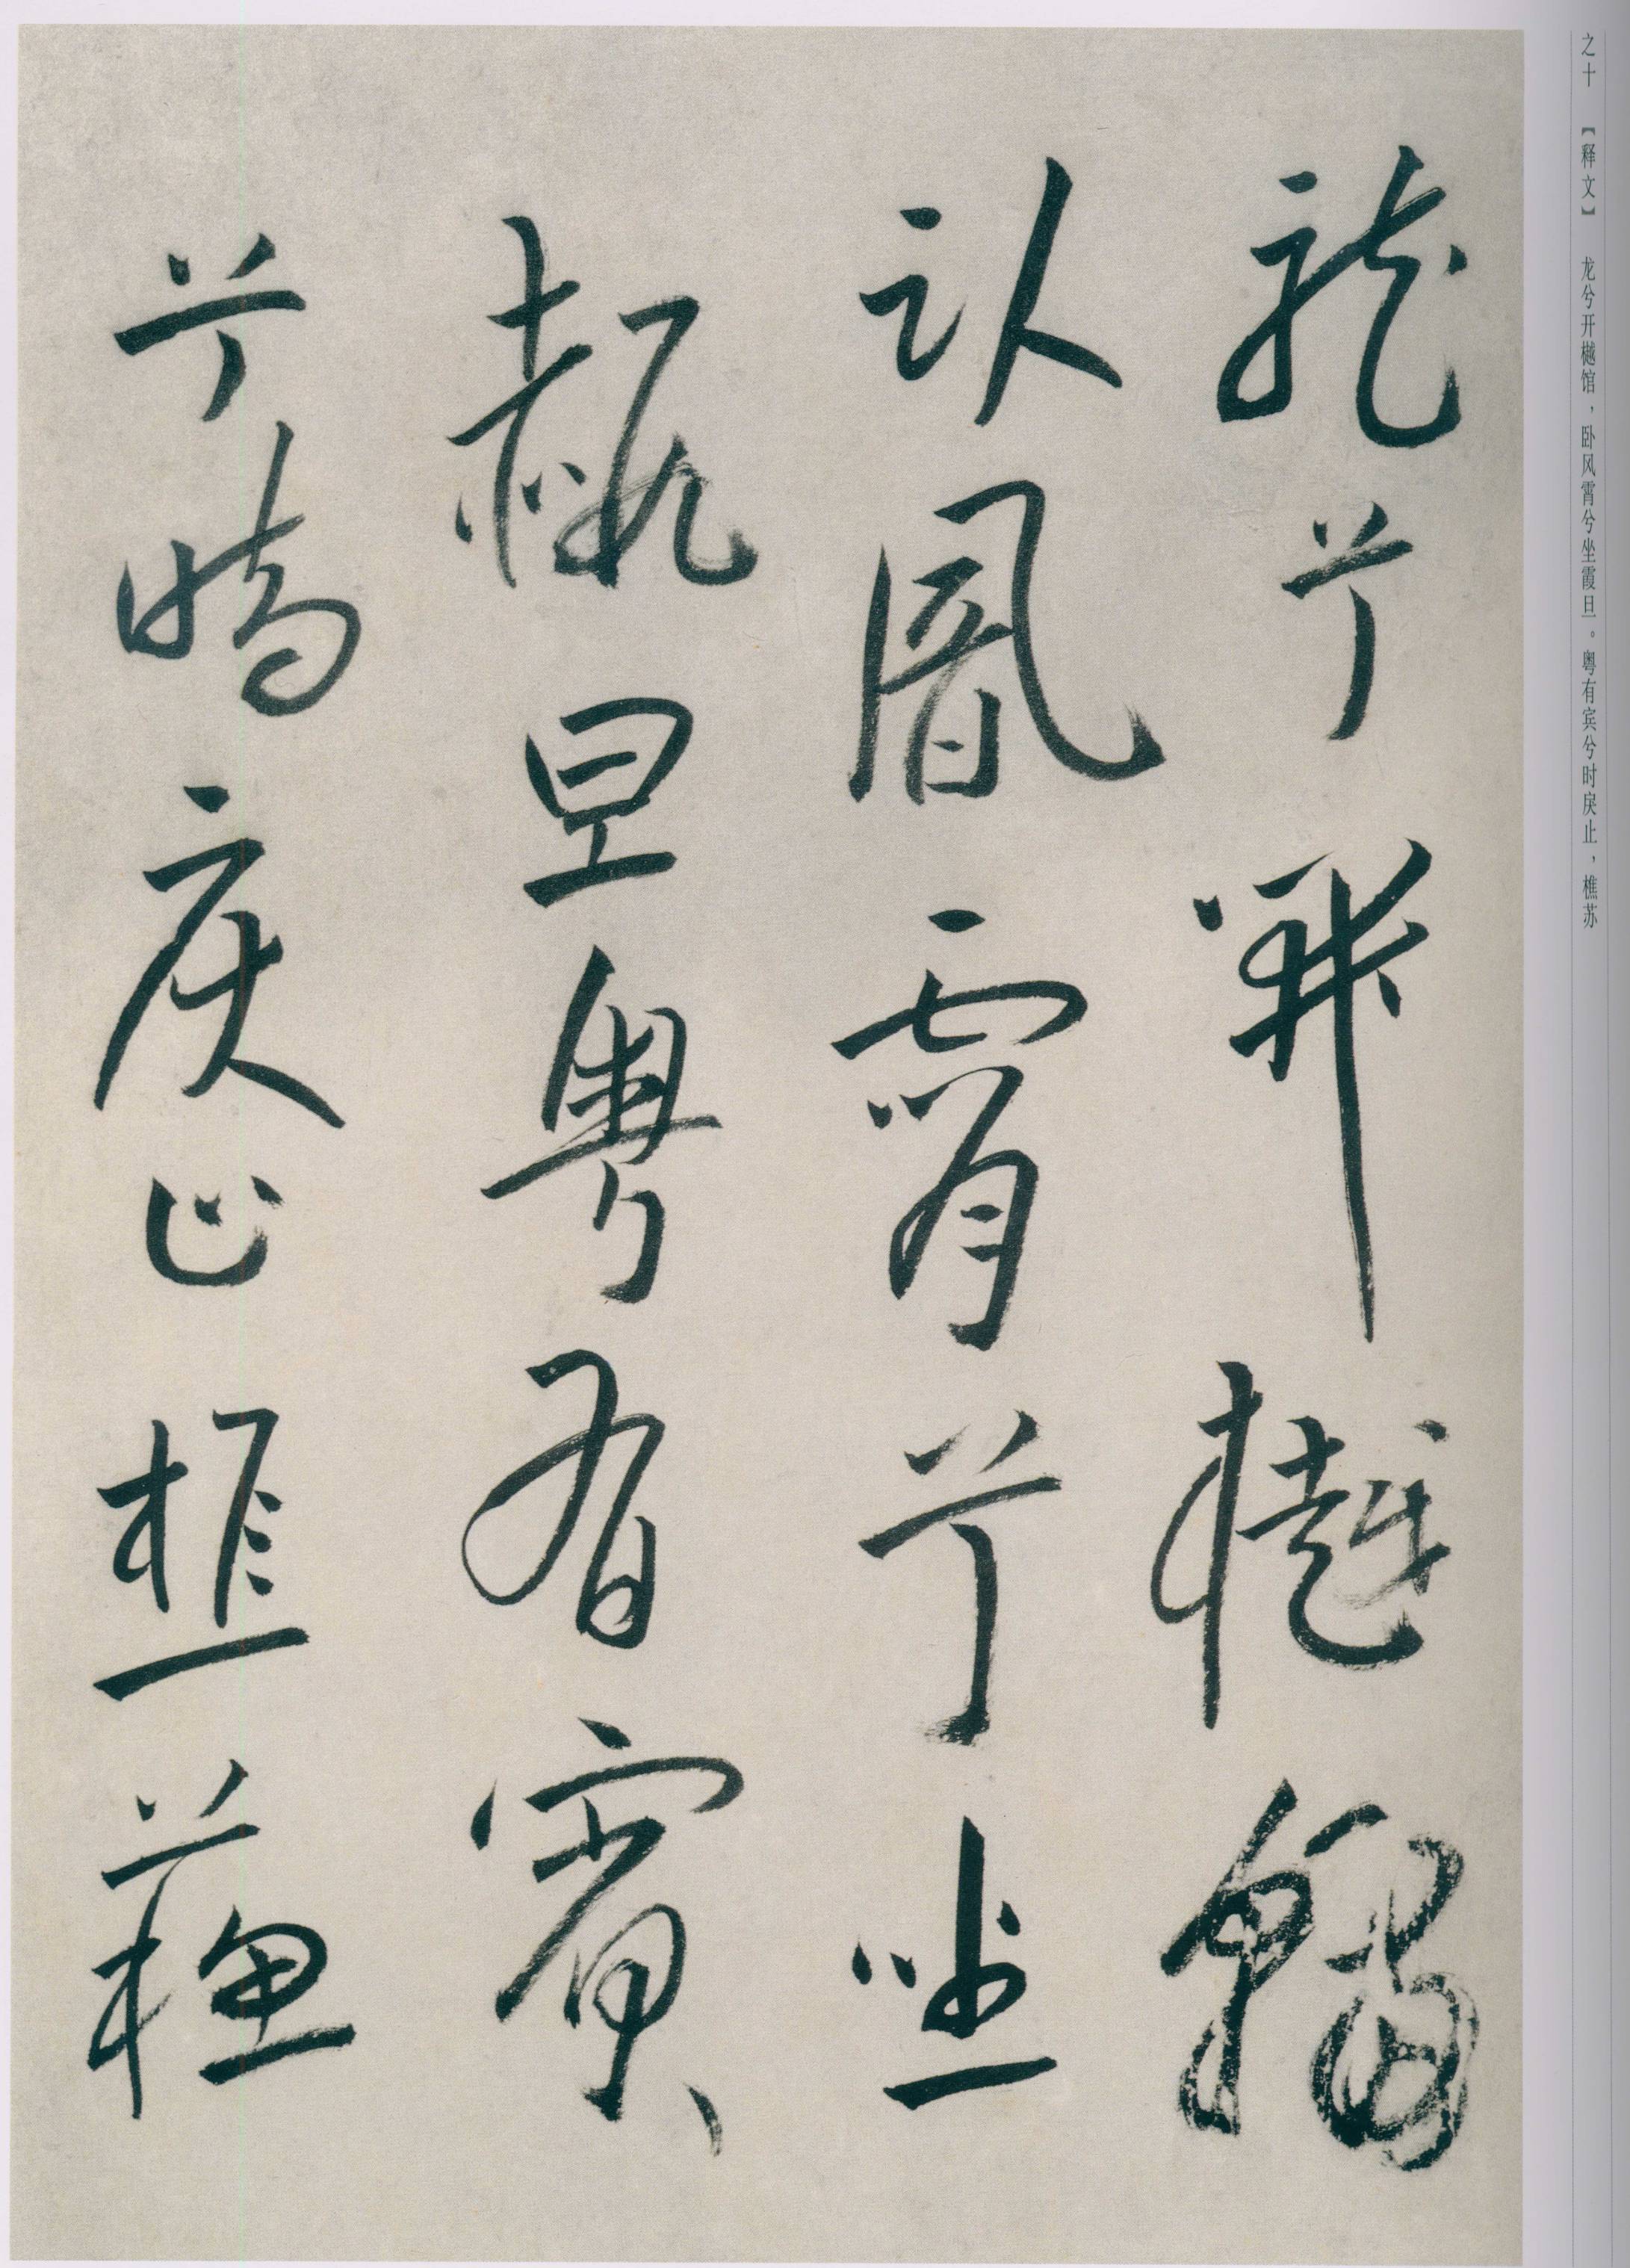 之十 【释文】 龙兮开樾馆，卧风霄兮坐霞旦。粤有宾兮时戾止，樵苏
龍兮開樾館
卧風霄兮坐
赮旦粤有賓
兮時戾止樵蘇